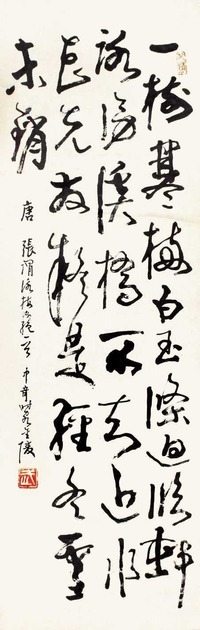 一樹寒梅白玉條迥臨村
路傍溪橋不知近水
花先發疑是經冬雪
未銷
唐 張謂詠梅